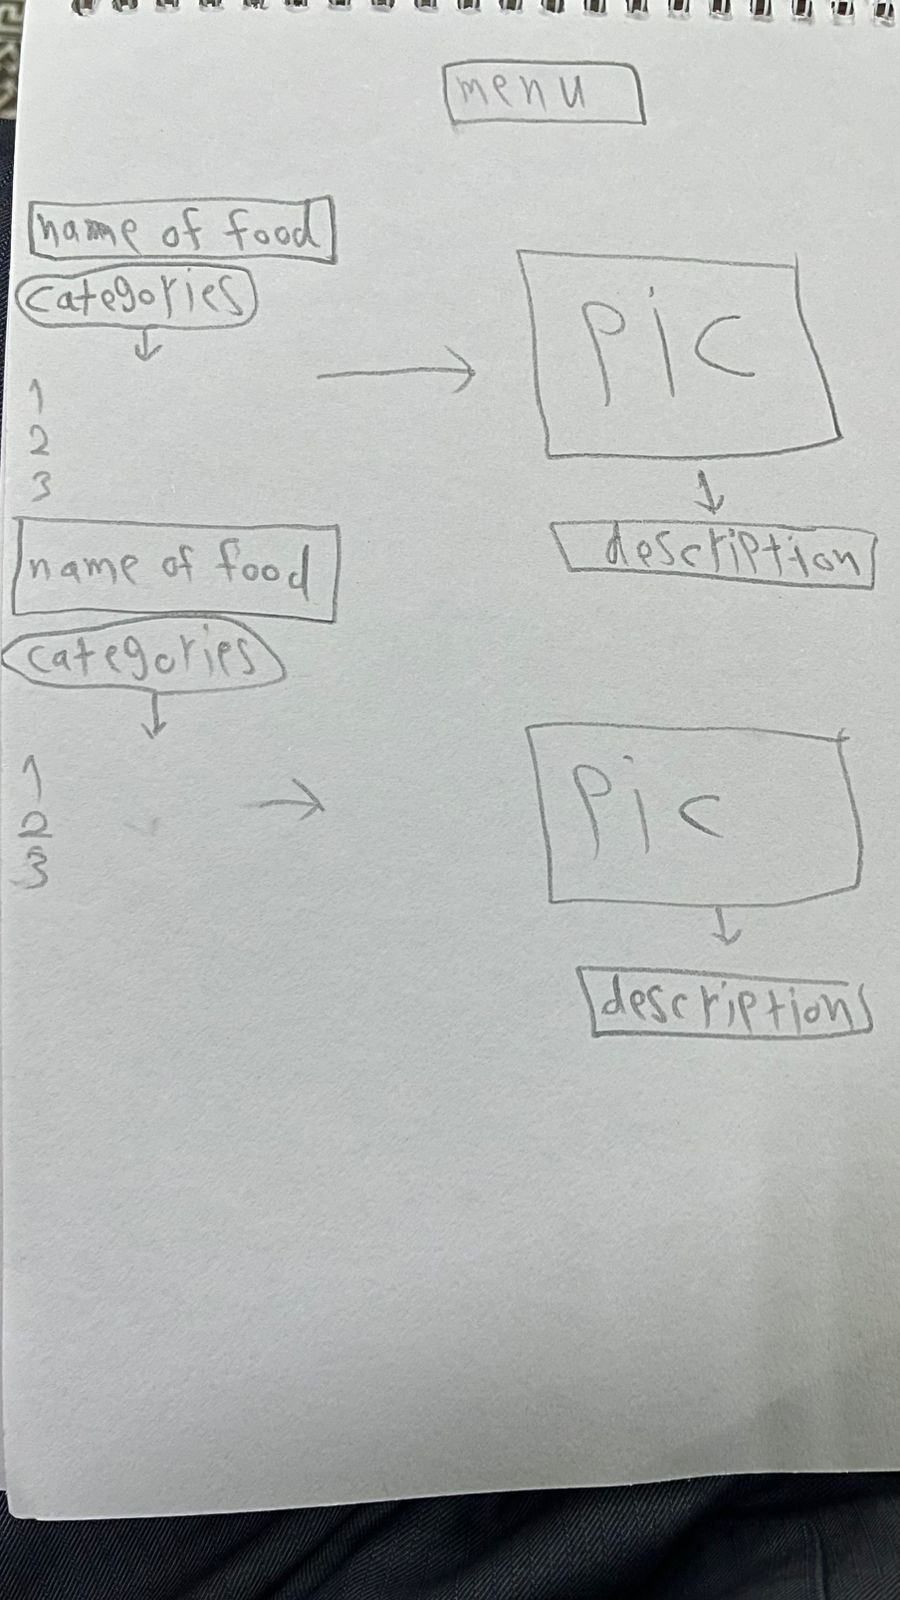 menu
name of food
categories
1
2
3
pic
description
name of food
categories
1
2
3
pic
descriptions